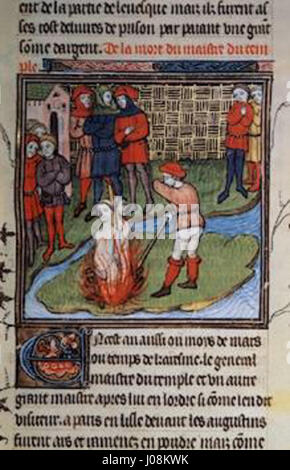 ent de la partie de levesque mais ilz furent as
ses tost delivres de prison par paiant une grãt
some dargent. De la mort du maistre du tem
ple.
En cest an aussi ou moys de mars
ou temps de karesme. le general
maistre du temple et vn autre
grant maistre apres lui en lordre si come len dit
visiteur. a paris en lisle deuant les augustins
furent ars et ramenez en poudre mais come
alamy
Image ID: J08KWK
www.alamy.com